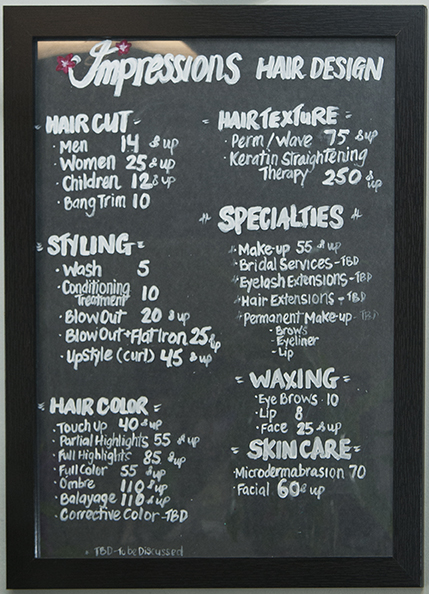 Impressions HAIR DESIGN
HAIR CUT
· Men 14 & up
· Women 25 & up
· Children 12 & up
· Bang Trim 10
STYLING
· Wash 5
· Conditioning
Treatment 10
· Blow Out 20 & up
· Blow Out + Flat Iron 25 & up
· Upstyle (curl) 45 & up
HAIR COLOR
· Touch up 40 & up
· Partial Highlights 55 & up
· Full Highlights 85 & up
· Full Color 55 & up
· Ombre 110 & up
· Balayage 110 & up
· Corrective Color - TBD
* TBD - to be Discussed
HAIR TEXTURE
· Perm / Wave 75 & up
· Keratin Straightening
Therapy 250 & up
SPECIALTIES
* Make-up 55 & up
* Bridal Services - TBD
* Eyelash Extensions - TBD
* Hair Extensions - TBD
* Permanent Make-up - TBD
- Brows
- Eyeliner
- Lip
WAXING
· Eye Brows 10
· Lip 8
· Face 25 & up
SKIN CARE
· Microdermabrasion 70
· Facial 60 & up